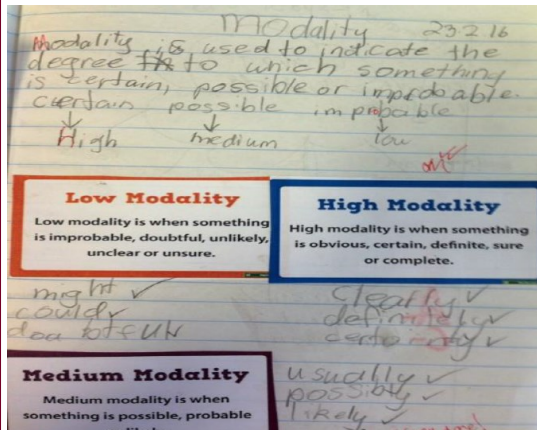 Modality 23.2.16
Modality is used to indicate the
degree to which something
is certain, possible or improbable.
certain possible improbable
High medium low
Low Modality
Low modality is when something
is improbable, doubtful, unlikely,
unclear or unsure.
High Modality
High modality is when something
is obvious, certain, definite, sure
or complete.
might
could
clearly
definitely
certainly
Medium Modality
Medium modality is when
something is possible, probable
usually
possibly
likely